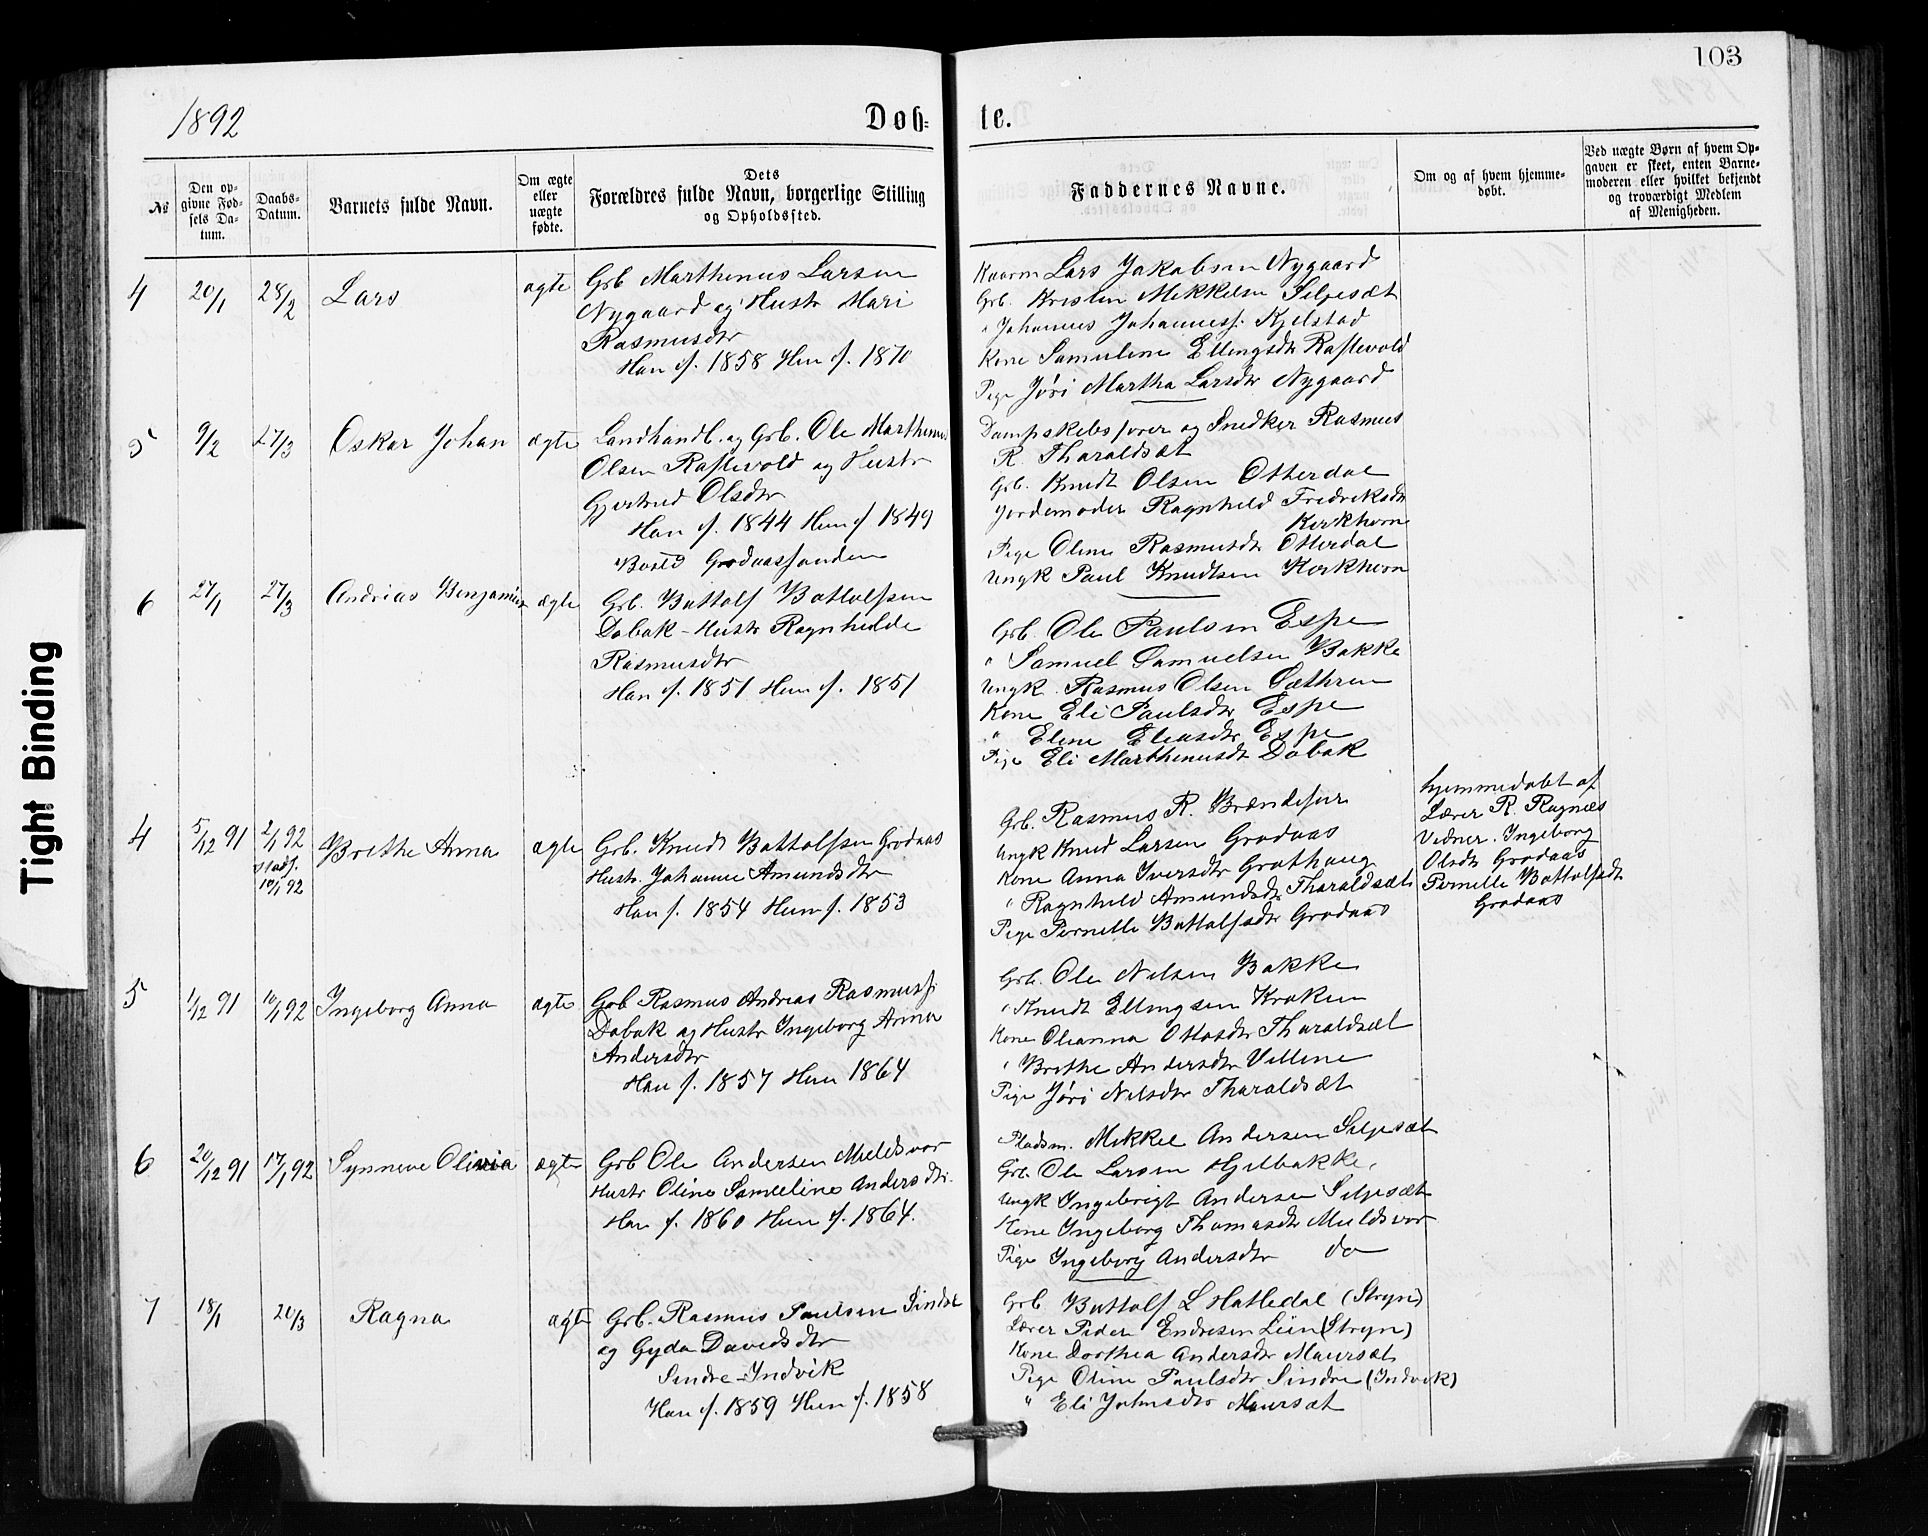 103
1892
Døb-
te.
№
Den op-
givne Fød-
sels Da-
tum.
Daabs-
Datum.
Barnets fulde Navn.
Om ægte
eller
uægte
fødte.
Dets
Forældres fulde Navn, borgerlige Stilling
og Opholdssted.
Faddernes Navne.
Om og af hvem hjemme-
døbt.
Ved uægte Børn af hvem Op-
gaven er skeet, enten Barne-
moderen eller hvilket bekjendt
og troværdigt Medlem
af Menigheden.
4
20/1
28/2
Lars
ægte
Grb Marthinus Larsen
Nygaard og Hustr Mari
Rasmusdtr
Han f. 1858 Hun f. 1870
Kaarm Lars Jakobsen Nygaard
Grb. Kristen Mikkelsen Siljesæt
" Johannes Johannesf. Kjelstad
Kone Samuline Ellingsdtr Raftevold
Pige Jóri Martha Larsdtr Nygaard
5
9/2
27/3
Oskar Johan
ægte
Landhandl. og Grb. Ole Marthinus
Olsen Raftevold og Hustr
Gjertrud Olsdtr
Han f. 1844 Hun f 1849
Bosed Grodaassanden
Dampskibsfører og Snedker Rasmus
R. Tharaldsæt
Grb. Knudt Olsen Otterdal
Jordemoder Ragnhild Fredriksdtr
Kirkhorn
Pige Oline Rasmusdtr Otterdal
Ungk Paul Knudtsen Kirkhorn
6
27/1
27/3
Andrias Benjamin
ægte
Grb. Bottolf Bottolfsen
Dobak - Hustr Ragnhilde
Rasmusdtr
Han f. 1851 Hun f. 1851
Grb. Ole Paulsen Espe
" Samuel Samuelsen Bakke
Ungk. Rasmus Olsen Sæthren
Kone Eli Paulsdtr Espe
" Eline Eliasdtr Espe
Pige Eli Marthinusdt Dobak
4
5/12 91
2/1 92
stadf.
10/1 92
Brithe Anna
ægte
Grb. Knudt Bottolfsen Grodaas
Hustr. Johanne Amundsdtr
Han f. 1854 Hun f. 1853
Grb. Rasmus R. Brændefur
Ungk Knud Larsen Grodaas
Kone Anna Iversdtr Grothaug
" Ragnhild Amundsdtr Tharaldsæt
Pige Pernille Bottolfsdtr Grodaas
hjemmedøbt af
Lærer R. Ragnæs
Vidner. Ingeborg
Olsdt Grodaas
Pernille Bottolfsdtr
Grodaas
5
1/12 91
10/1 92
Ingeborg Anna
ægte
Grb Rasmus Andreas Rasmusf.
Dobak og Hustr Ingeborg Anna
Andersdtr
Han f. 1857 Hun 1864
Grb. Ole Nilsen Bakke
" Knudt Ellingsen Kroken
Kone Olianna Ottosdtr Tharaldsæt
" Brithe Andersdtr Villine
Pige Jóri Nilsdtr Tharaldsæt
6
20/12 91
17/1 92
Synneve Olivia
ægte
Grb Ole Andersen Muldsvor
Hustr Oline Samuline Andersdtr.
Han f. 1860 Hun f. 1864.
Pladsm. Mikkel Andersen Siljesæt
Grb. Ole Larsen Hjelbakke.
Ungk Ingebrigt Andersen Siljesæt
Kone Ingeborg Thomasdtr Muldsvor
Pige Ingeborg Andersdtr do
7
18/1
20/3
Ragna
ægte
Grb. Rasmus Paulsen Sindre
og Gyda Davidsdtr
Sindre - Indvik
Han f. 1859 Hun f. 1858
Grb Bottolf L Hatledal (Stryn)
Lærer Peder Endresen Lein (Stryn)
Kone Dorthea Andersdtr Maursæt
Pige Oline Paulsdtr Sindre (Indvik)
" Eli Johnsdtr Maursæt
Tight Binding